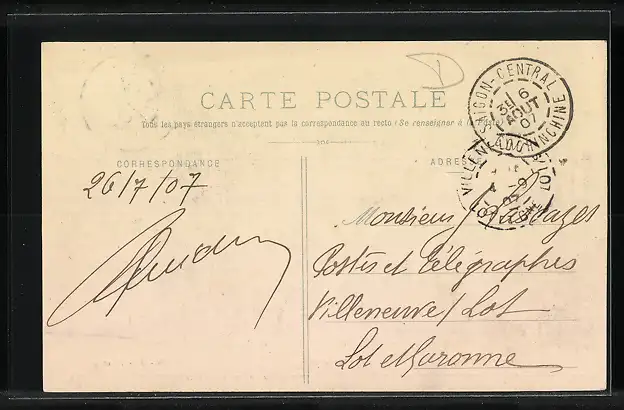 CARTE POSTALE
Tous les pays étrangers n'acceptent pas la correspondance au recto (Se renseigner à la
CORRESPONDANCE
ADRES
26/7/07
SAIGON-CENTRAL
3E
6
AOUT
07
COCHINCHINE
VILLEN
LOT
9
07
Monsieur
Postes et Télégraphes
Villeneuve / Lot
Lot et Garonne